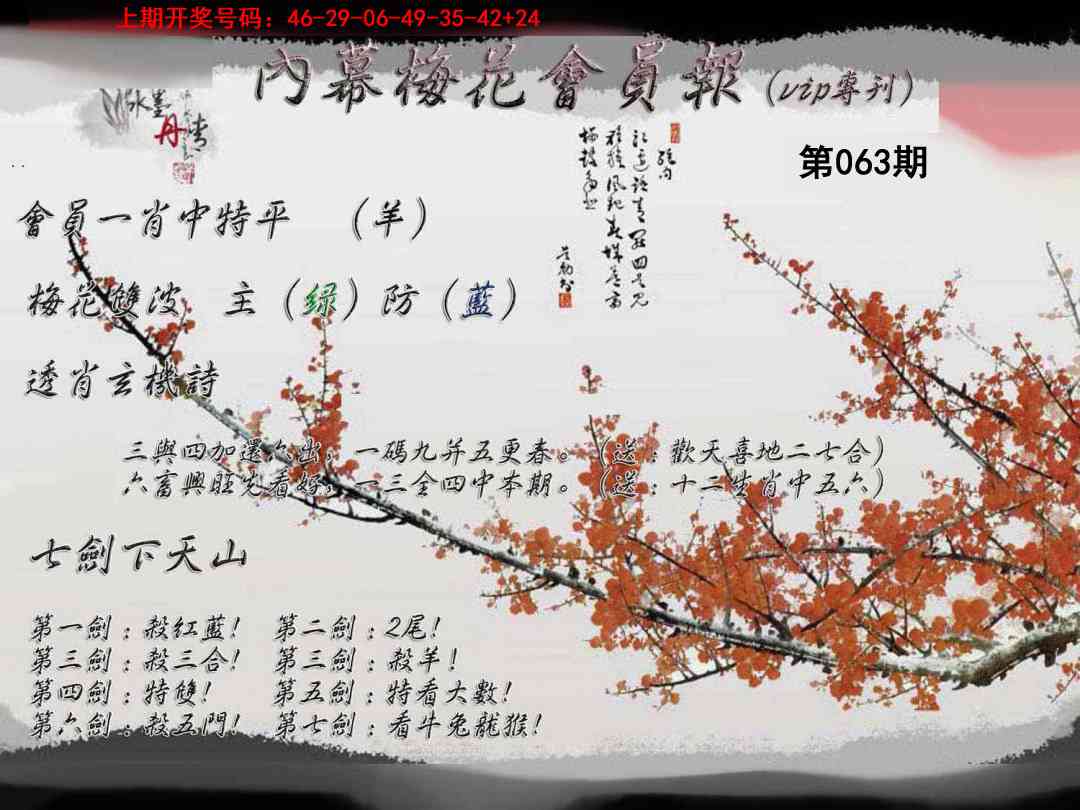 上期开奖号码：46-29-06-49-35-42+24
內幕梅花會員報(vip專刊)
水墨丹情
第063期
會員一肖中特平　（羊）
梅花雙波　主（绿）防（藍）
透肖玄機詩
三與四加還欠出，一碼九并五更春。（送：歡天喜地二七合）
六畜興旺先看好，一三全四中本期。（送：十二生肖中五六）
七劍下天山
第一劍：殺紅藍！　第二劍：2尾！
第三劍：殺三合！　第三劍：殺羊！
第四劍：特雙！　第五劍：特看大數！
第六劍：殺五門！　第七劍：看牛兔龍猴！